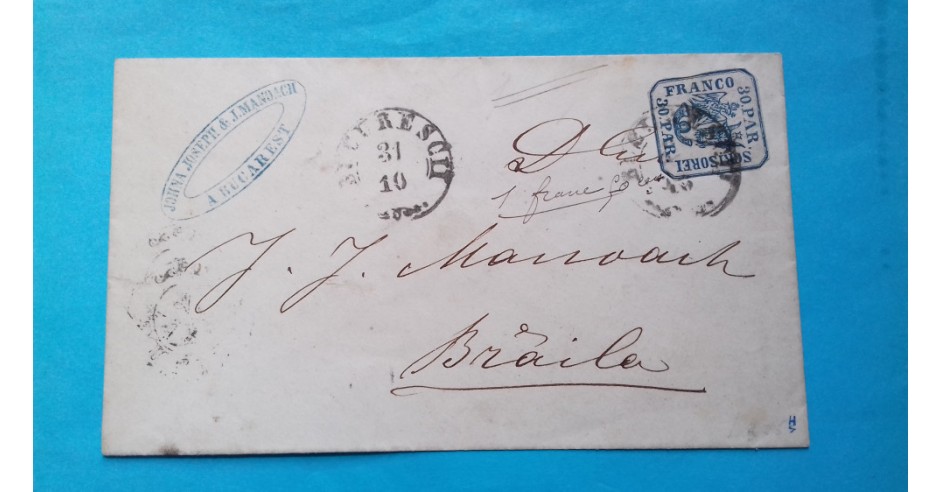 JOHNA JOSEPH & J. MANOACH
A BUCAREST
BUCURESCII
31
10
FRANCO
30 PAR.
SCRISOREI
30 PAR.
1 franc
J. J. Manoach
Brăila